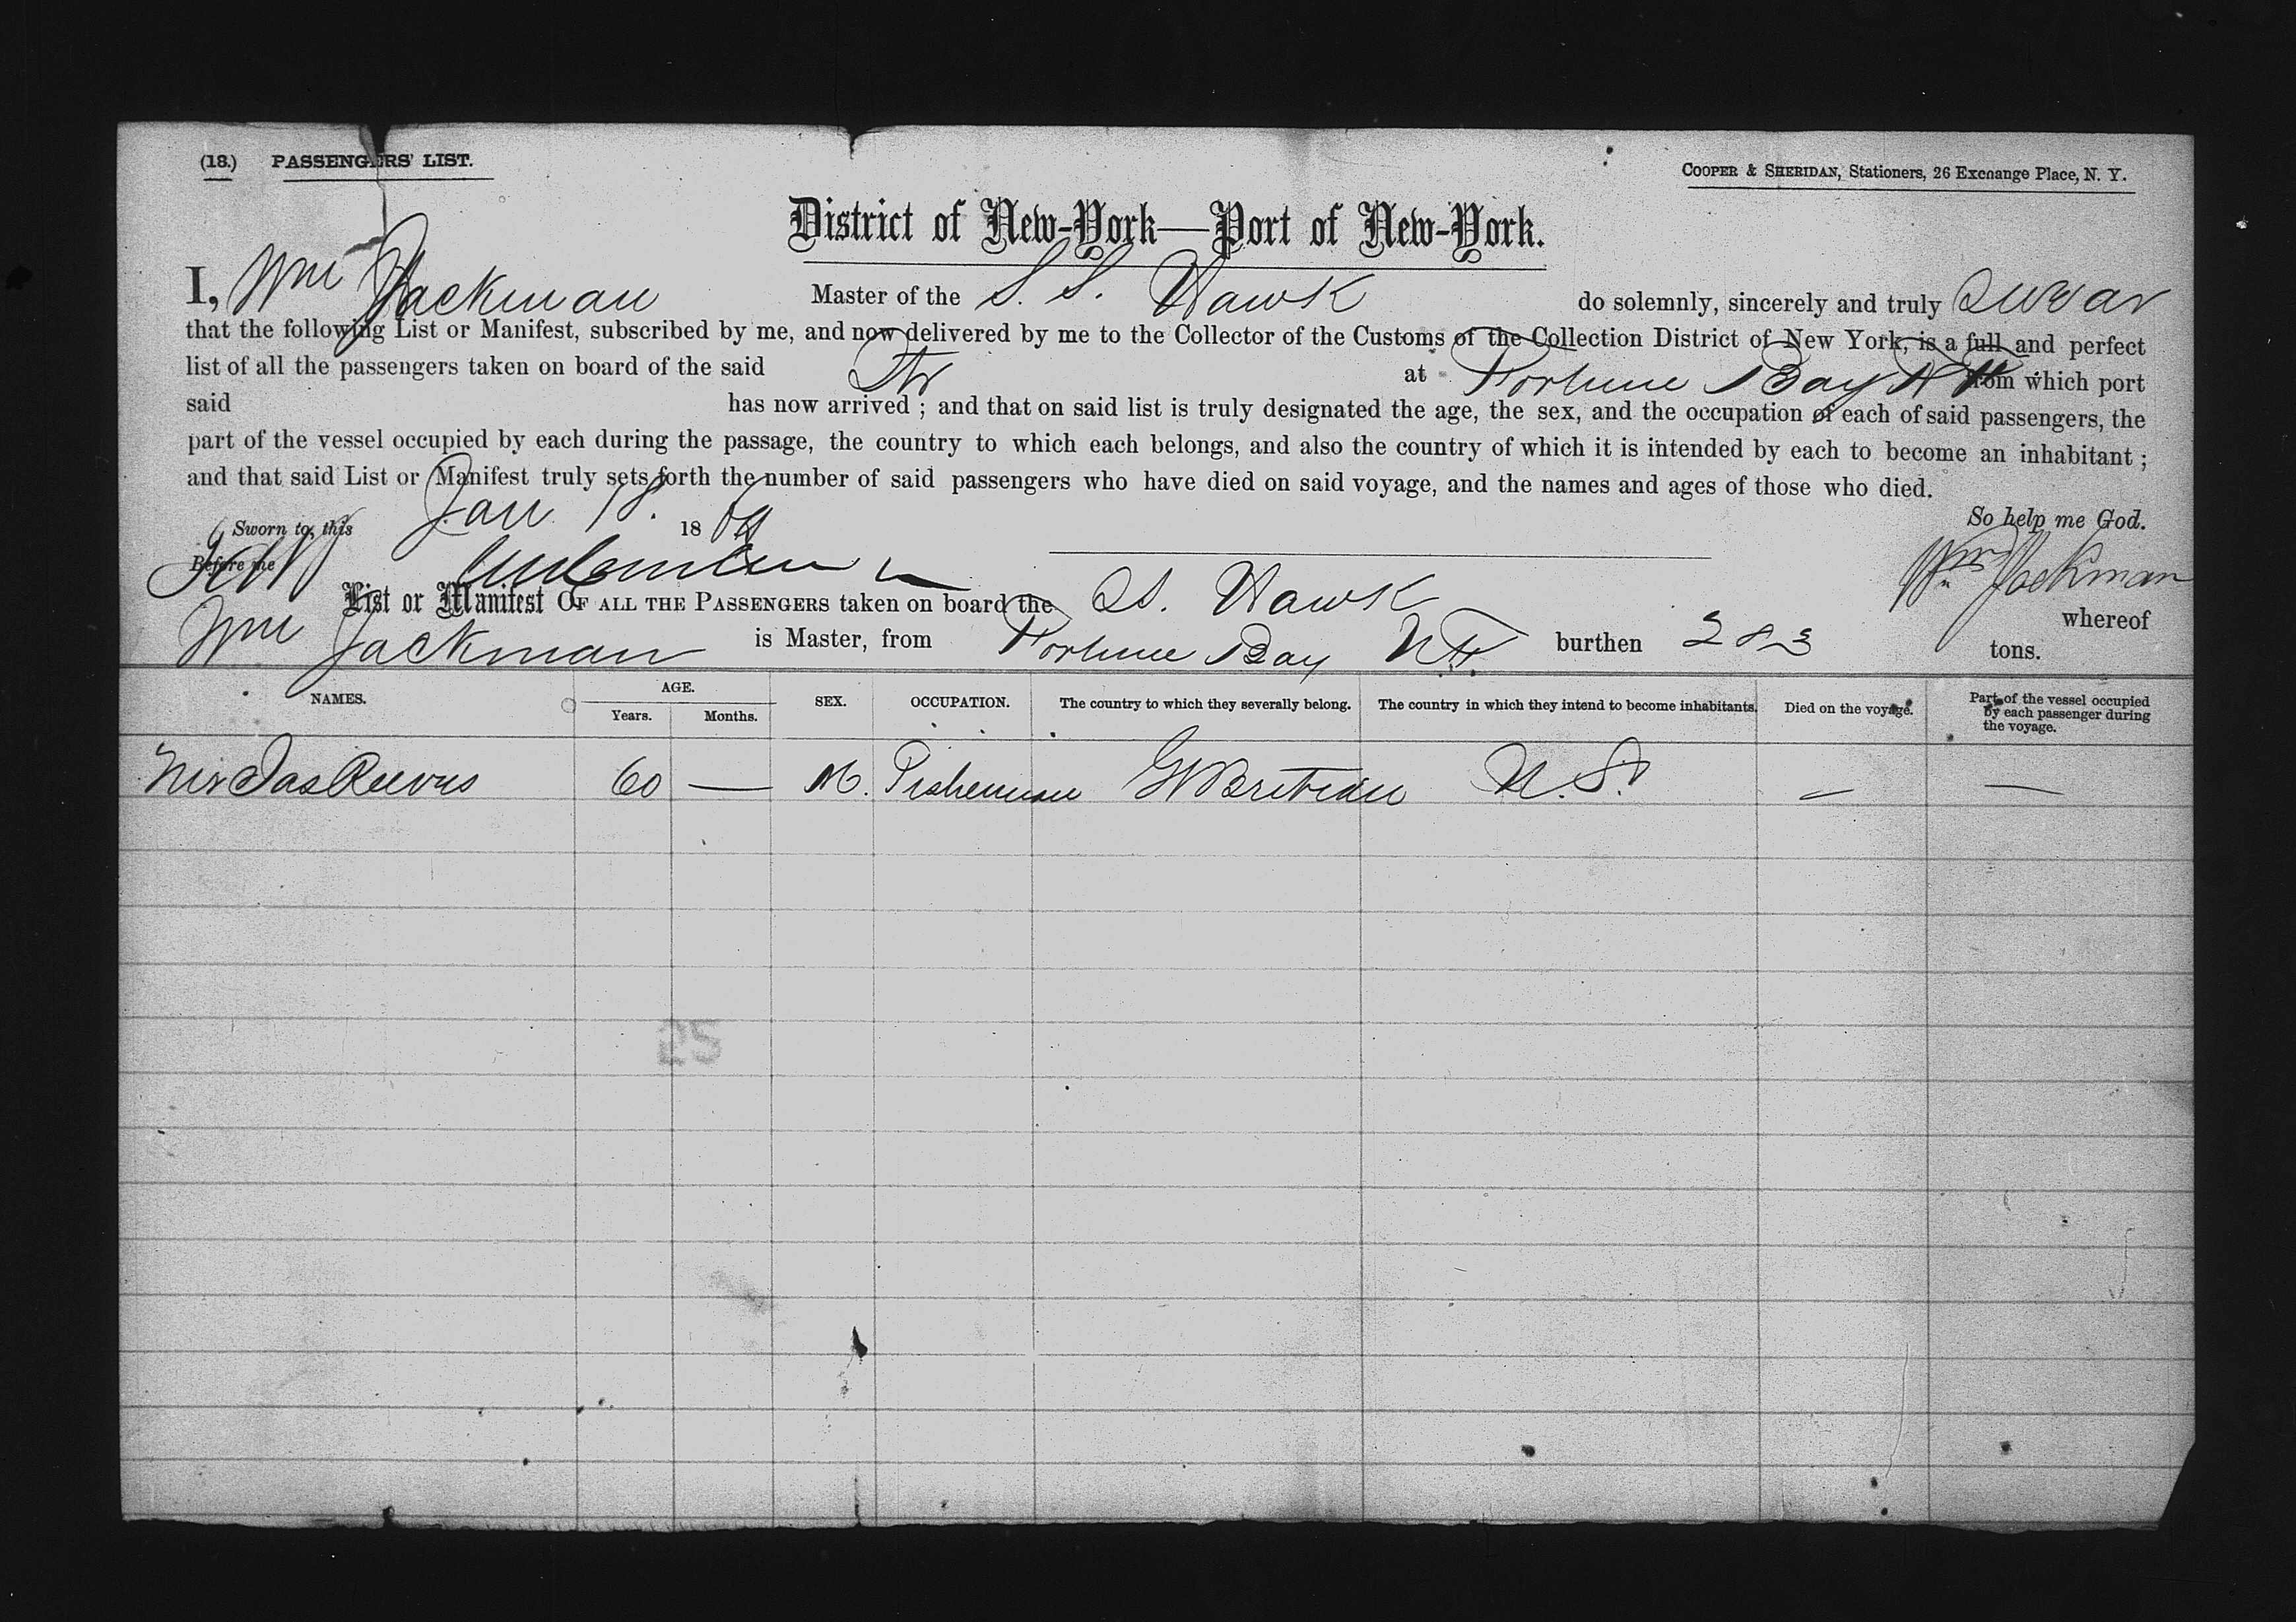 (18.) PASSENGERS' LIST.
COOPER & SHERIDAN, Stationers, 26 Exchange Place, N. Y.
District of New-York—Port of New-York.
I, Wm Jackman Master of the S. S. Hawk do solemnly, sincerely and truly Swear
that the following List or Manifest, subscribed by me, and now delivered by me to the Collector of the Customs of the Collection District of New York, is a full and perfect
list of all the passengers taken on board of the said Str at Fortune Bay N F from which port
said has now arrived ; and that on said list is truly designated the age, the sex, and the occupation of each of said passengers, the
part of the vessel occupied by each during the passage, the country to which each belongs, and also the country of which it is intended by each to become an inhabitant ;
and that said List or Manifest truly sets forth the number of said passengers who have died on said voyage, and the names and ages of those who died.
Sworn to, this Jan 18. 18 So help me God.
Before me Wm Jackman
List or Manifest OF ALL THE PASSENGERS taken on board the SS. Hawk whereof
Wm Jackman is Master, from Fortune Bay N.F. burthen 283 tons.
NAMES. AGE. SEX. OCCUPATION. The country to which they severally belong. The country in which they intend to become inhabitants. Died on the voyage. Part of the vessel occupied by each passenger during the voyage.
Years. Months.
Mr Jas Reeves 60 — M. Fisherman Gt Britain U. S. — —
25